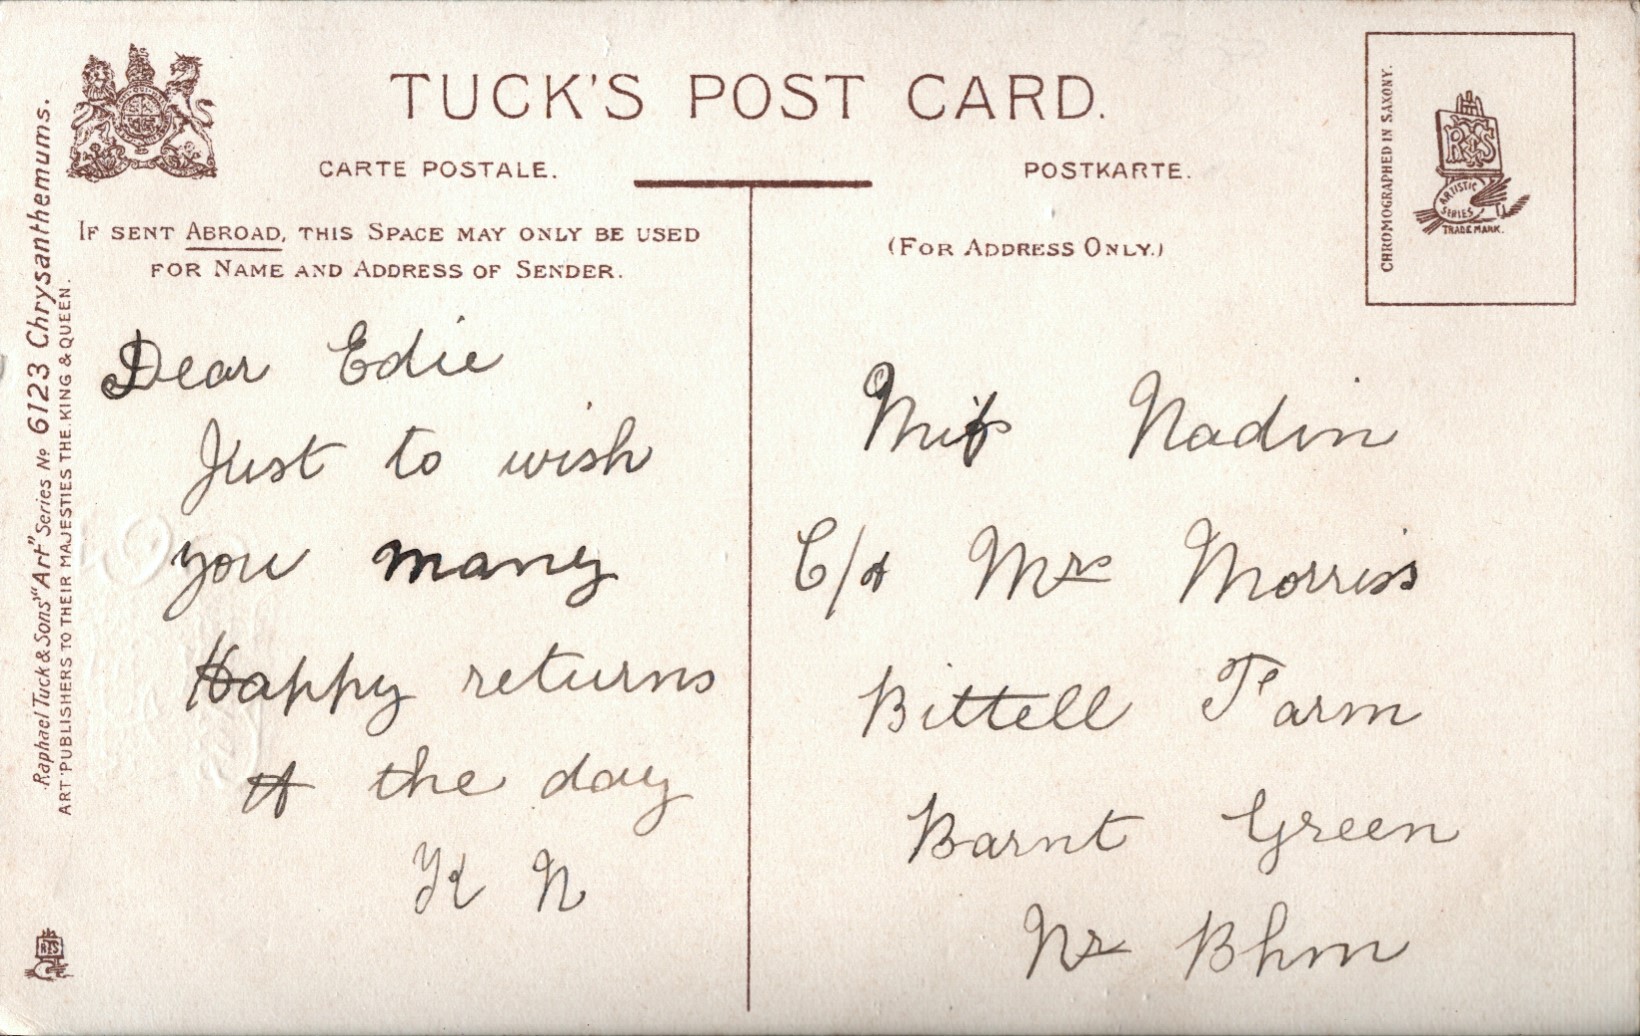 TUCK'S POST CARD.
CARTE POSTALE.
POSTKARTE.
IF SENT ABROAD, THIS SPACE MAY ONLY BE USED
FOR NAME AND ADDRESS OF SENDER.
(FOR ADDRESS ONLY.)
CHROMOGRAPHED IN SAXONY.
RTS
ARTISTIC
SERIES
TRADE MARK.
Raphael Tuck & Sons' "Art" Series No 6123 Chrysanthemums.
ART PUBLISHERS TO THEIR MAJESTIES THE KING & QUEEN.
Dear Edie
Just to wish
you many
Happy returns
of the day
K N
Miss Nadin
C/o Mrs Morriss
Bittell Farm
Barnt Green
Nr Bhm
RTS